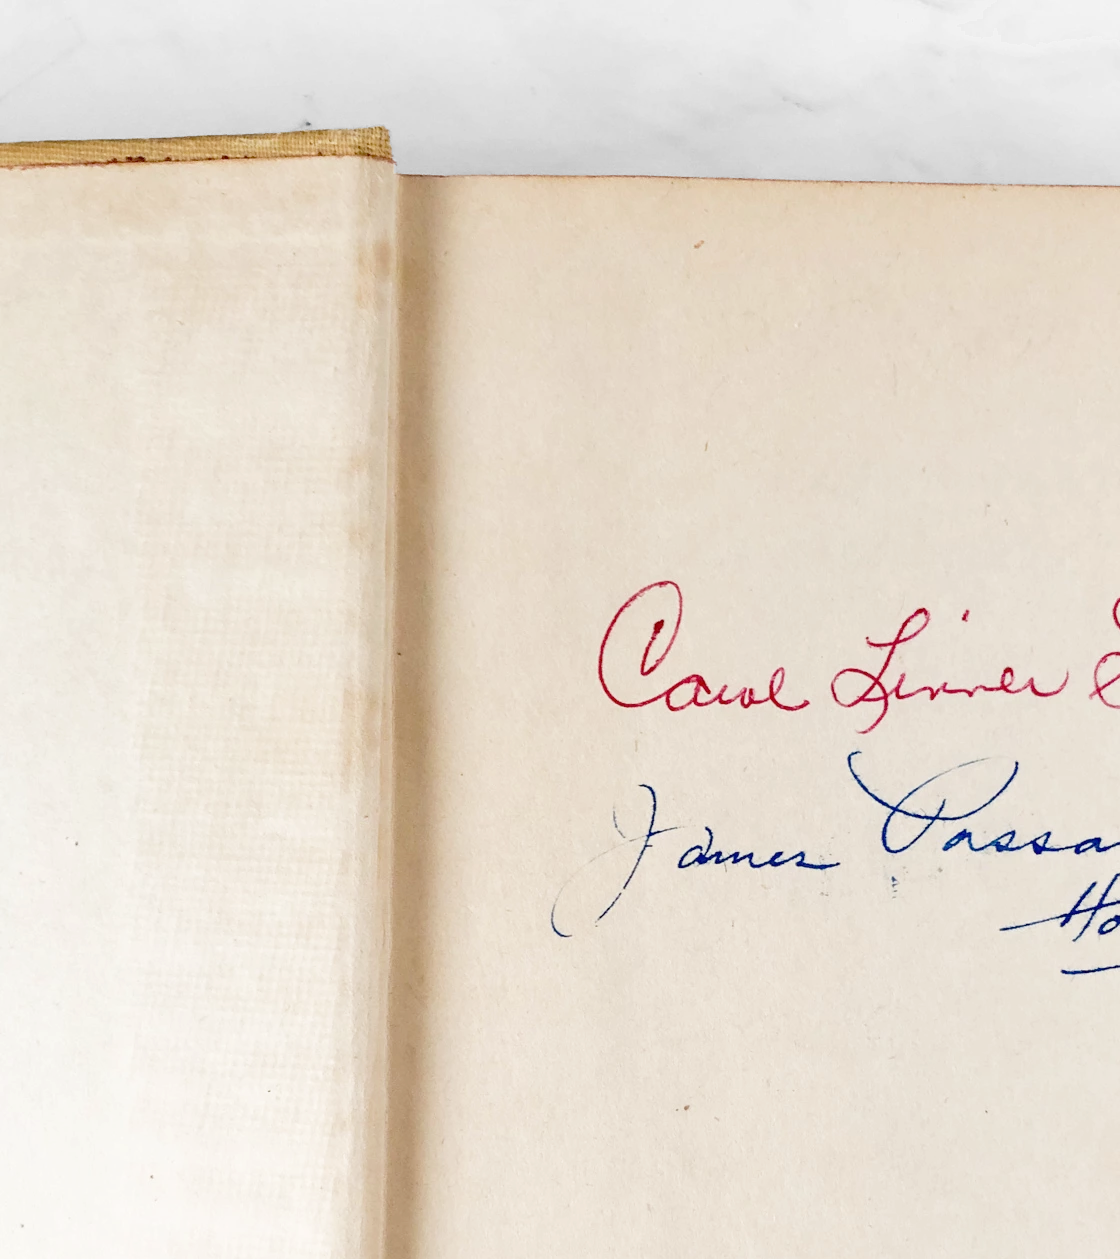 Carol Linner
James Passa
Ho